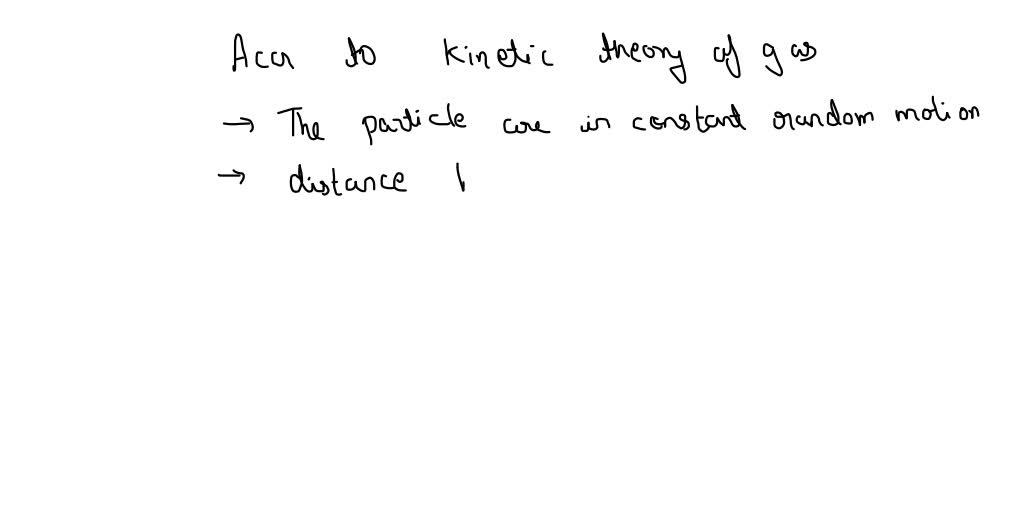 Accn to kinetic theory of gas
→ The particle are in constant random motion
→ distance